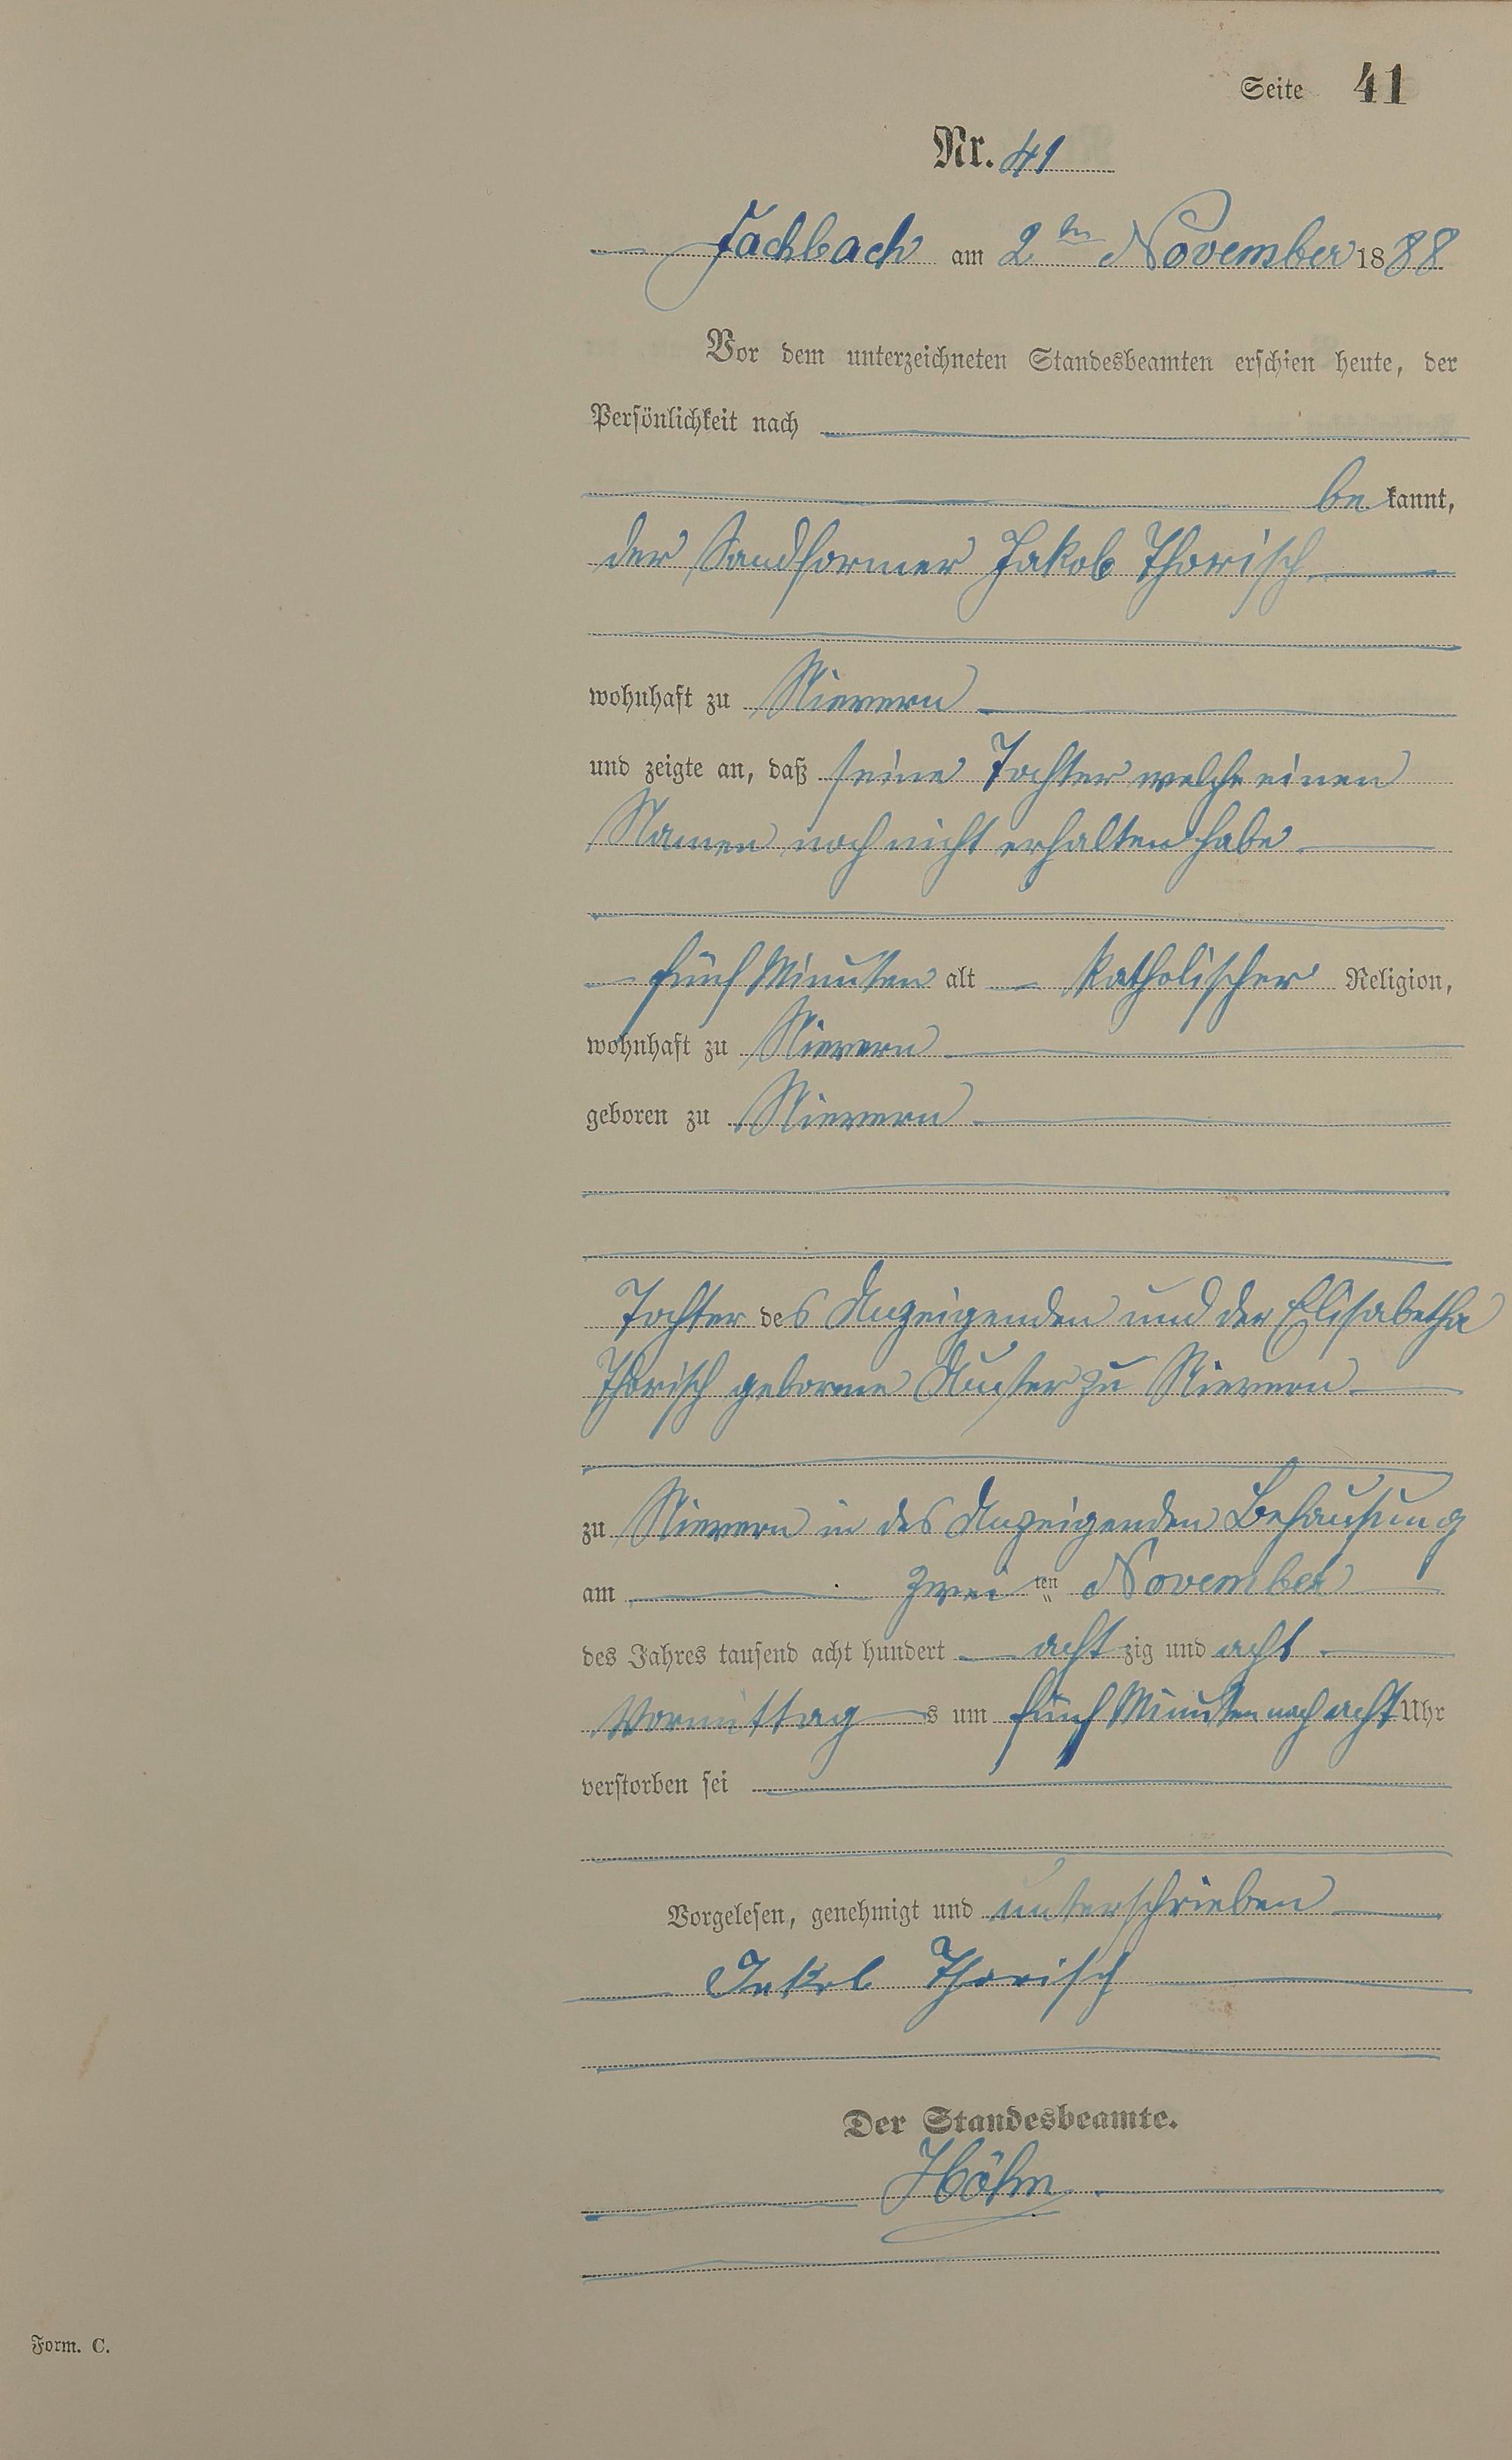 Seite 41
Nr. 41
Fachbach am 2ten November 1888
Vor dem unterzeichneten Standesbeamten erschien heute, der
Persönlichkeit nach
bekannt,
der Sandformer Jakob Thorisch
wohnhaft zu Nievern
und zeigte an, daß seine Tochter welche einen
Namen noch nicht erhalten habe
fünf Minuten alt katholischer Religion,
wohnhaft zu Nievern
geboren zu Nievern
Tochter des Anzeigenden und der Elisabetha
Thorisch geborne zu Nievern
zu Nievern in des Anzeigenden Behausung
am zweiten November
des Jahres tausend acht hundert achtzig und acht
Vormittags um fünf Minuten nach acht Uhr
verstorben sei
Vorgelesen, genehmigt und unterschrieben
Jakob Thorisch
Der Standesbeamte.
Höhn
Form. C.